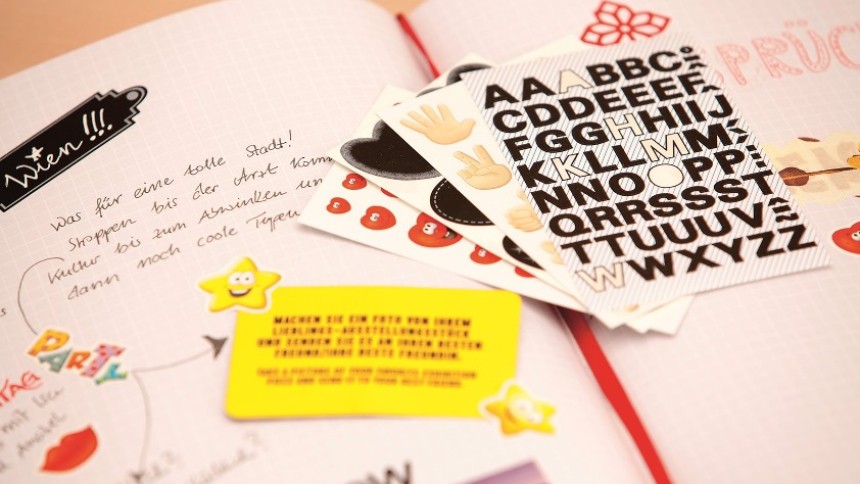 Wien!!!
Was für eine tolle Stadt!
Shoppen bis der Arzt kom
Kultur bis zum Abwinken un
dann noch coole Typen
PARTY
TAG
mit
MACHEN SIE EIN FOTO VON IHREM
LIEBLINGS-AUSSTELLUNGSSTÜCK
UND SENDEN SIE ES AN IHREN BESTEN
FREUND/IHRE BESTE FREUNDIN.
TAKE A PICTURE OF YOUR FAVORITE EXHIBITION
PIECE AND SEND IT TO YOUR BEST FRIEND
OW
AAABBC
CDDEEEF
FGGHHIIJ
KKLLMM
NNOOPP
QRRSSST
TTUUUV
WWXYZZ
SPRÜC